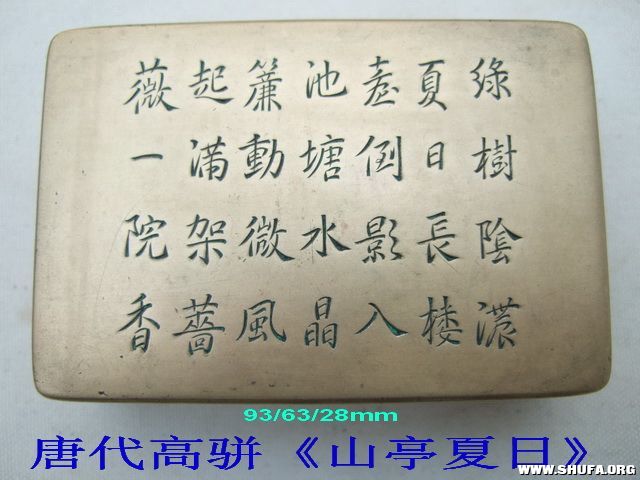 綠樹陰濃
夏日長楼
臺倒影入
池塘水晶
簾動微風
起满架薔
薇一院香
93/63/28mm
唐代高骈《山亭夏日》
WWW.SHUFA.ORG